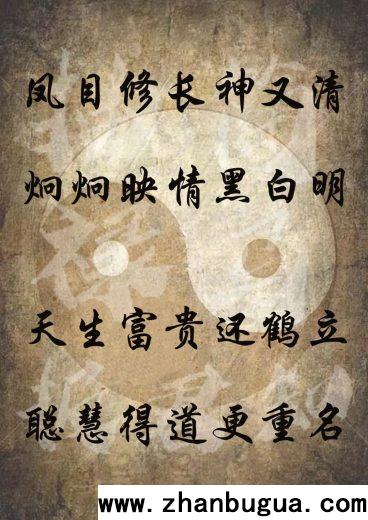 凤目修长神又清
炯炯映情黑白明
天生富贵还鹤立
聪慧得道更重名
www.zhanbugua.com